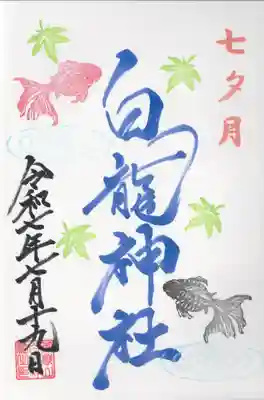 七夕月
白龍神社
令和七年七月十九日